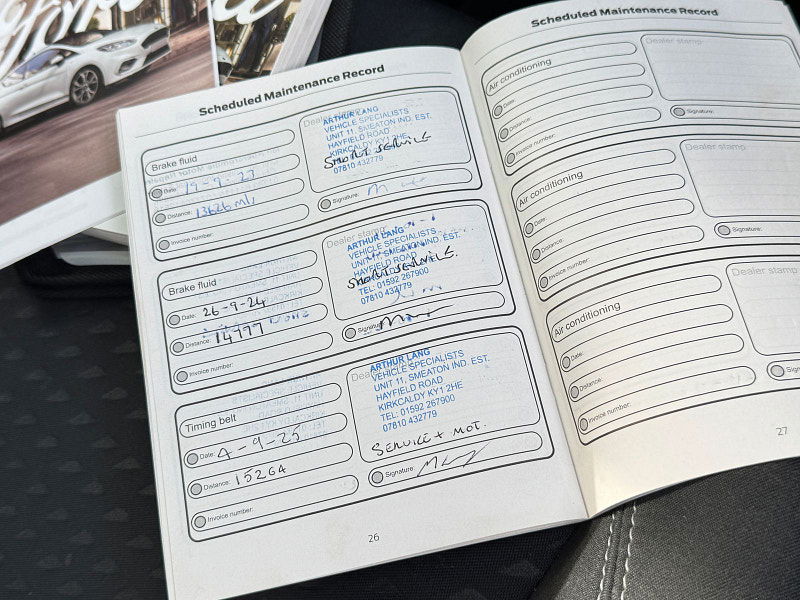 Scheduled Maintenance Record
Brake fluid
Date: 19-9-23
Distance: 13626 mls
Invoice number:
Dealer stamp
ARTHUR LANG
VEHICLE SPECIALISTS
UNIT 11, SMEATON IND. EST.
HAYFIELD ROAD
KIRKCALDY KY1 2HE
SMART SERVICE
07810 432779
Signature:
Brake fluid
Date: 26-9-24
Distance: 14977
Invoice number:
Dealer stamp
ARTHUR LANG
VEHICLE SPECIALISTS
UNIT 11, SMEATON IND. EST.
HAYFIELD ROAD
KIRKCALDY KY1 2HE
SMART SERVICE.
TEL: 01592 267900
07810 432779
Signature:
Timing belt
Date: 4-9-25
Distance: 15264
Invoice number:
ARTHUR LANG
VEHICLE SPECIALISTS
UNIT 11, SMEATON IND. EST.
HAYFIELD ROAD
KIRKCALDY KY1 2HE
TEL: 01592 267900
07810 432779
SERVICE + MOT.
Signature:
26
Scheduled Maintenance Record
Air conditioning
Date:
Distance:
Invoice number:
Dealer stamp
Signature:
Air conditioning
Date:
Distance:
Invoice number:
Dealer stamp
Signature:
Air conditioning
Date:
Distance:
Invoice number:
Dealer stamp
Signature:
27